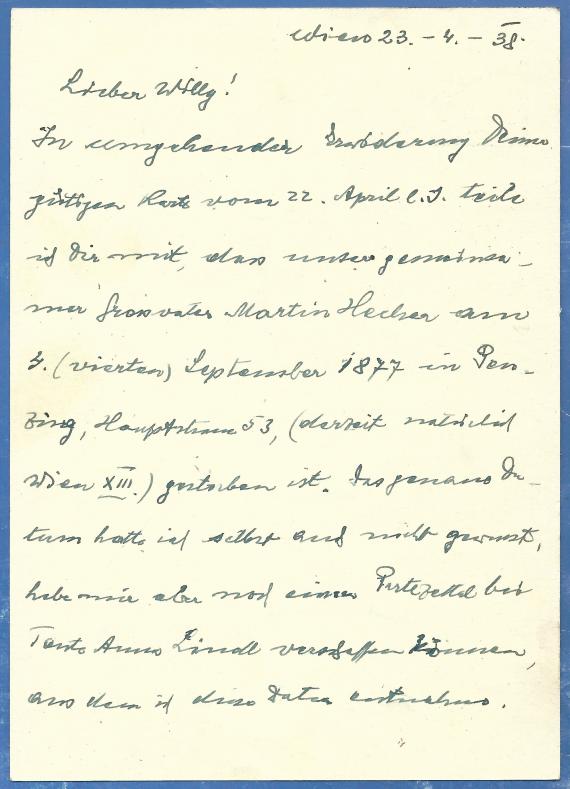 Wien 23. - 4. - 38.
Lieber Willy!
In umgehender Erwiderung Deiner
gütigen Karte vom 22. April l. J. teile
ich Dir mit, dass unser gemeinsa-
mer Grossvater Martin Hecher am
4. (vierten) September 1877 in Pen-
zing, Hauptstrasse 53, (derzeit natürlich
Wien XIII.) gestorben ist. Das genaue Da-
tum hatte ich selbst auch nicht gewusst,
habe mir aber noch einen Partezettel bei
Tante Anna Zindl verschaffen können,
aus dem ich diese Daten entnehme.